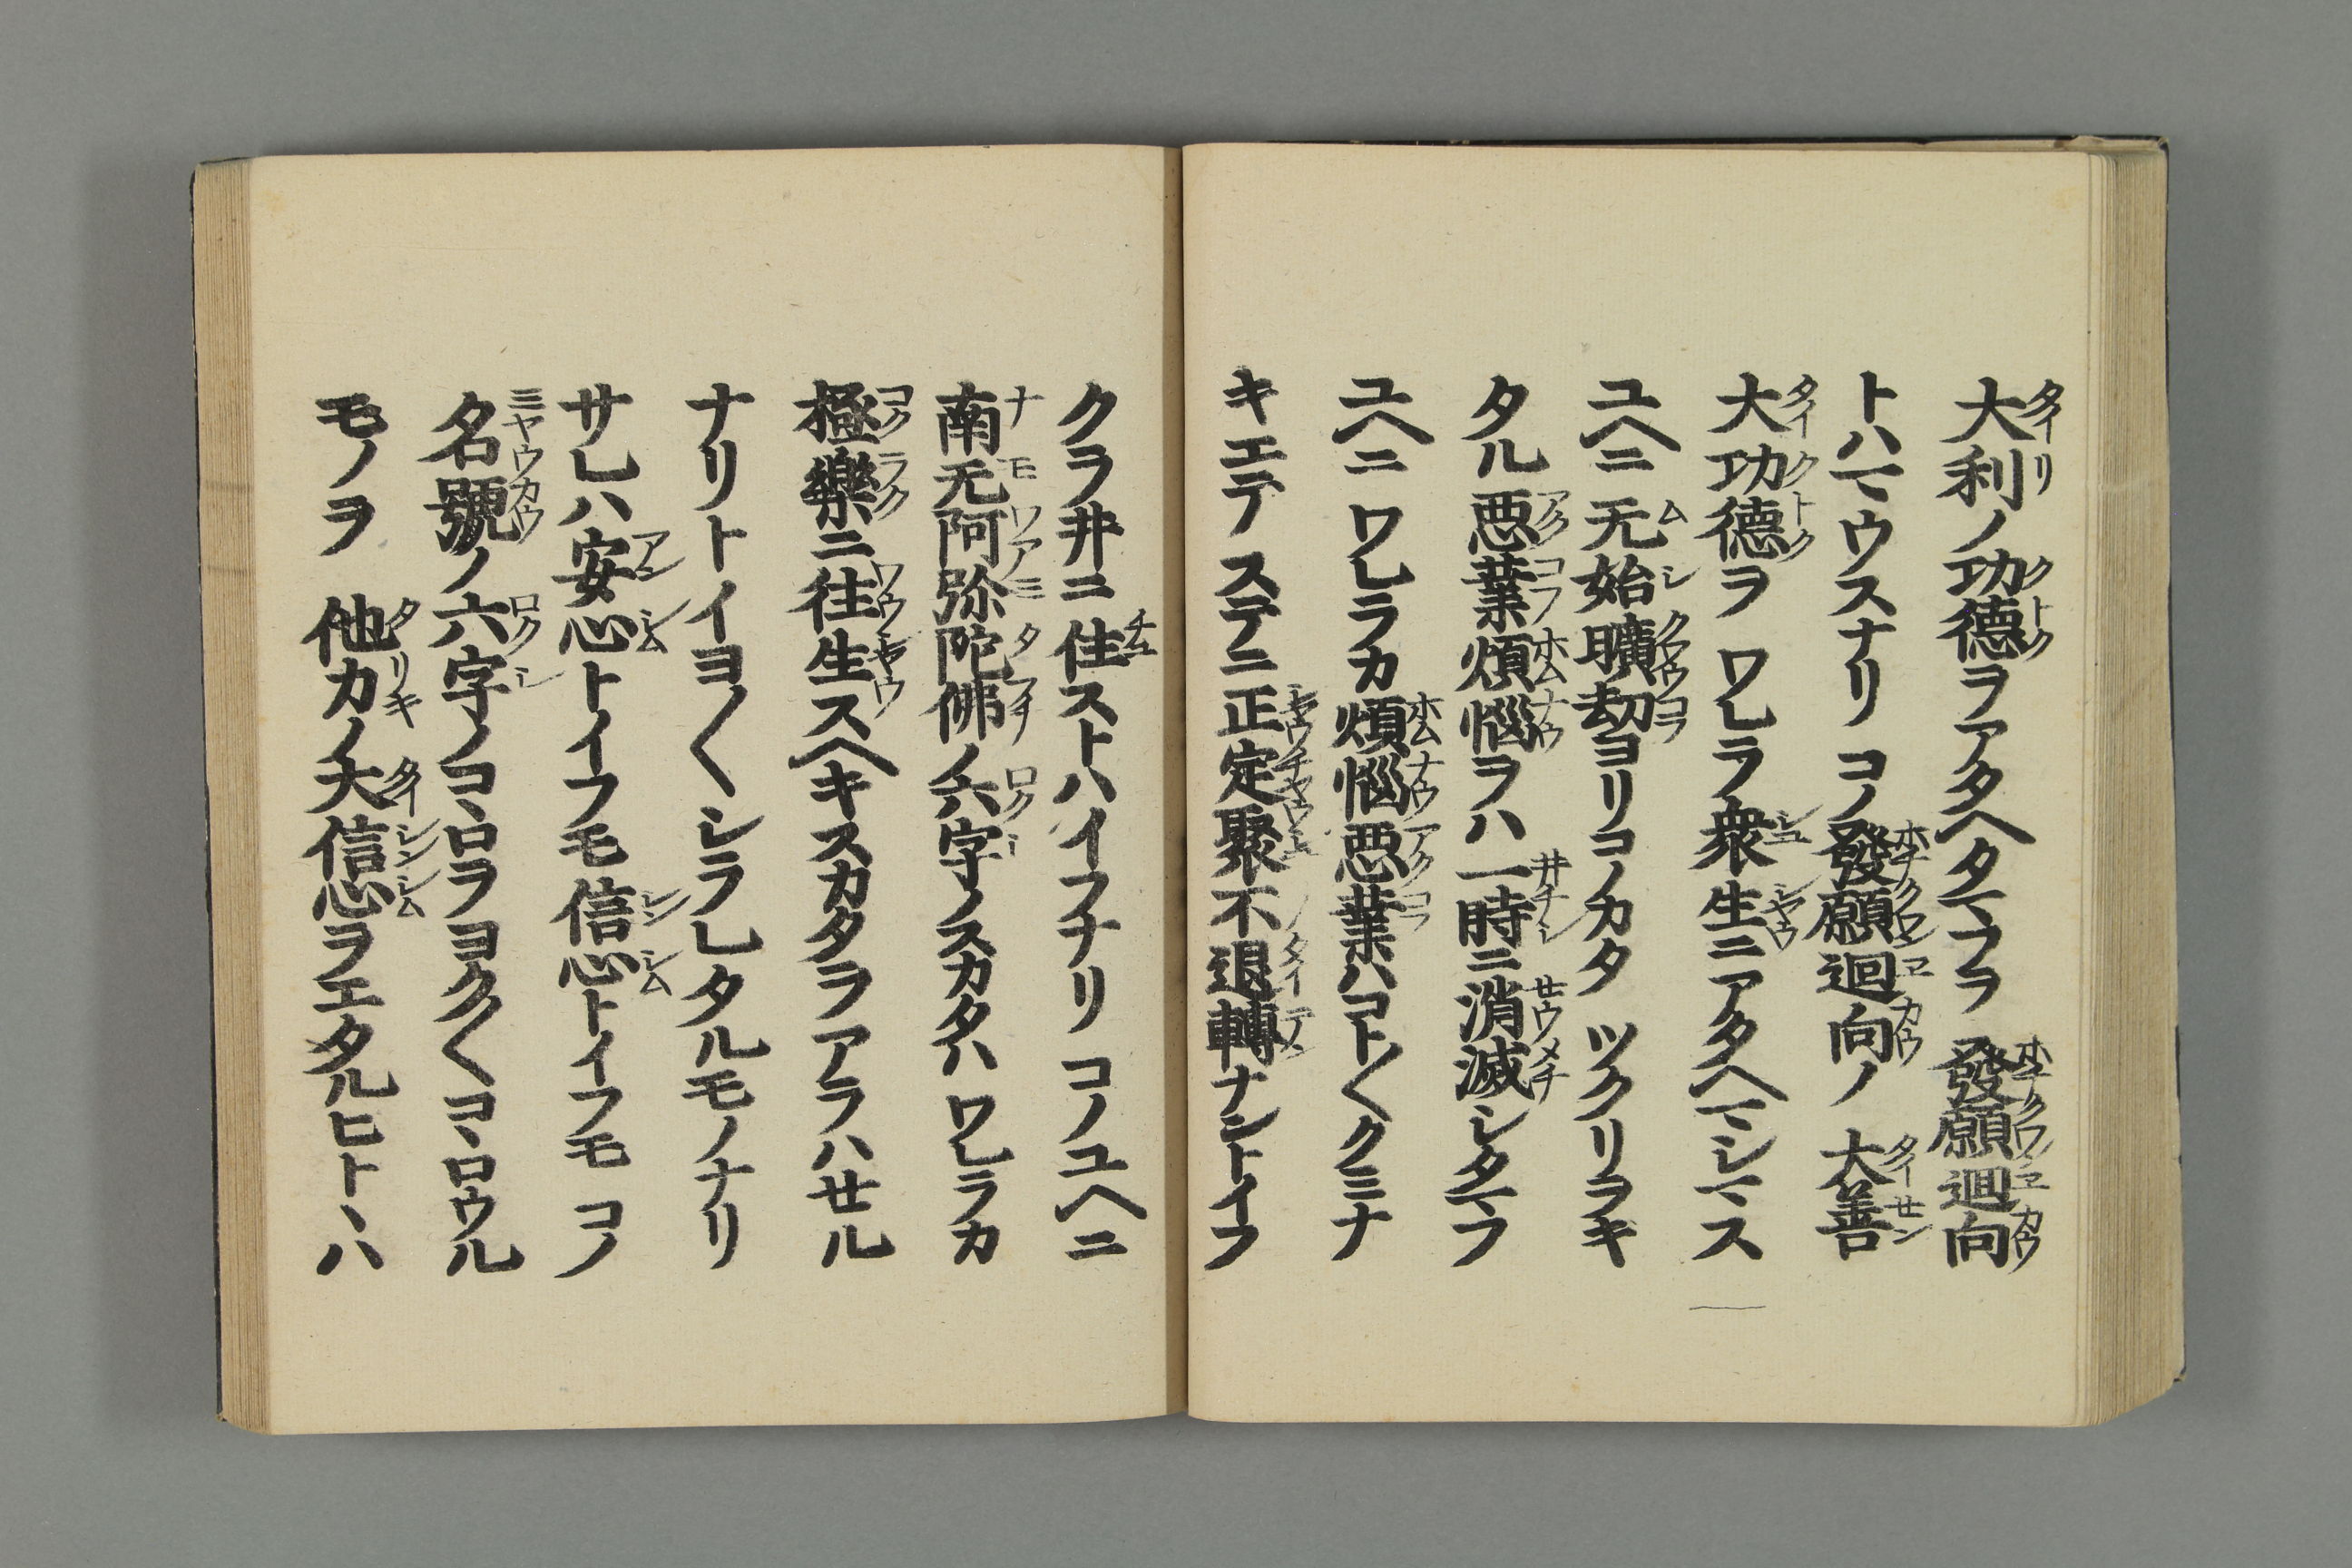 大利ノ功德ヲアタヘタマフヲ 發願迴向
トハマウスナリ コノ發願迴向ノ 大善
大功德ヲ ワレラ衆生ニアタヘマシマス
ユヘニ 无始曠劫ヨリコノカタ ツクリヲキ
タル惡業煩惱ヲハ 一時ニ消滅シタマフ
ユヘニ ワレラカ煩惱惡業ハコト〱クミナ
キエテ ステニ正定聚不退轉ナントイフ
クラ井ニ住ストハイフナリ コノユヘニ
南无阿弥陀佛ノ六字ノスカタハ ワレラカ
極樂ニ往生スヘキスカタヲ アラハセル
ナリトイヨ〱シラレタルモノナリ
サレハ安心トイフモ 信心トイフモ コノ
名號ノ六字ノコヽロヲ ヨク〱コヽロウル
モノヲ 他力ノ大信心ヲエタルヒトヽハ